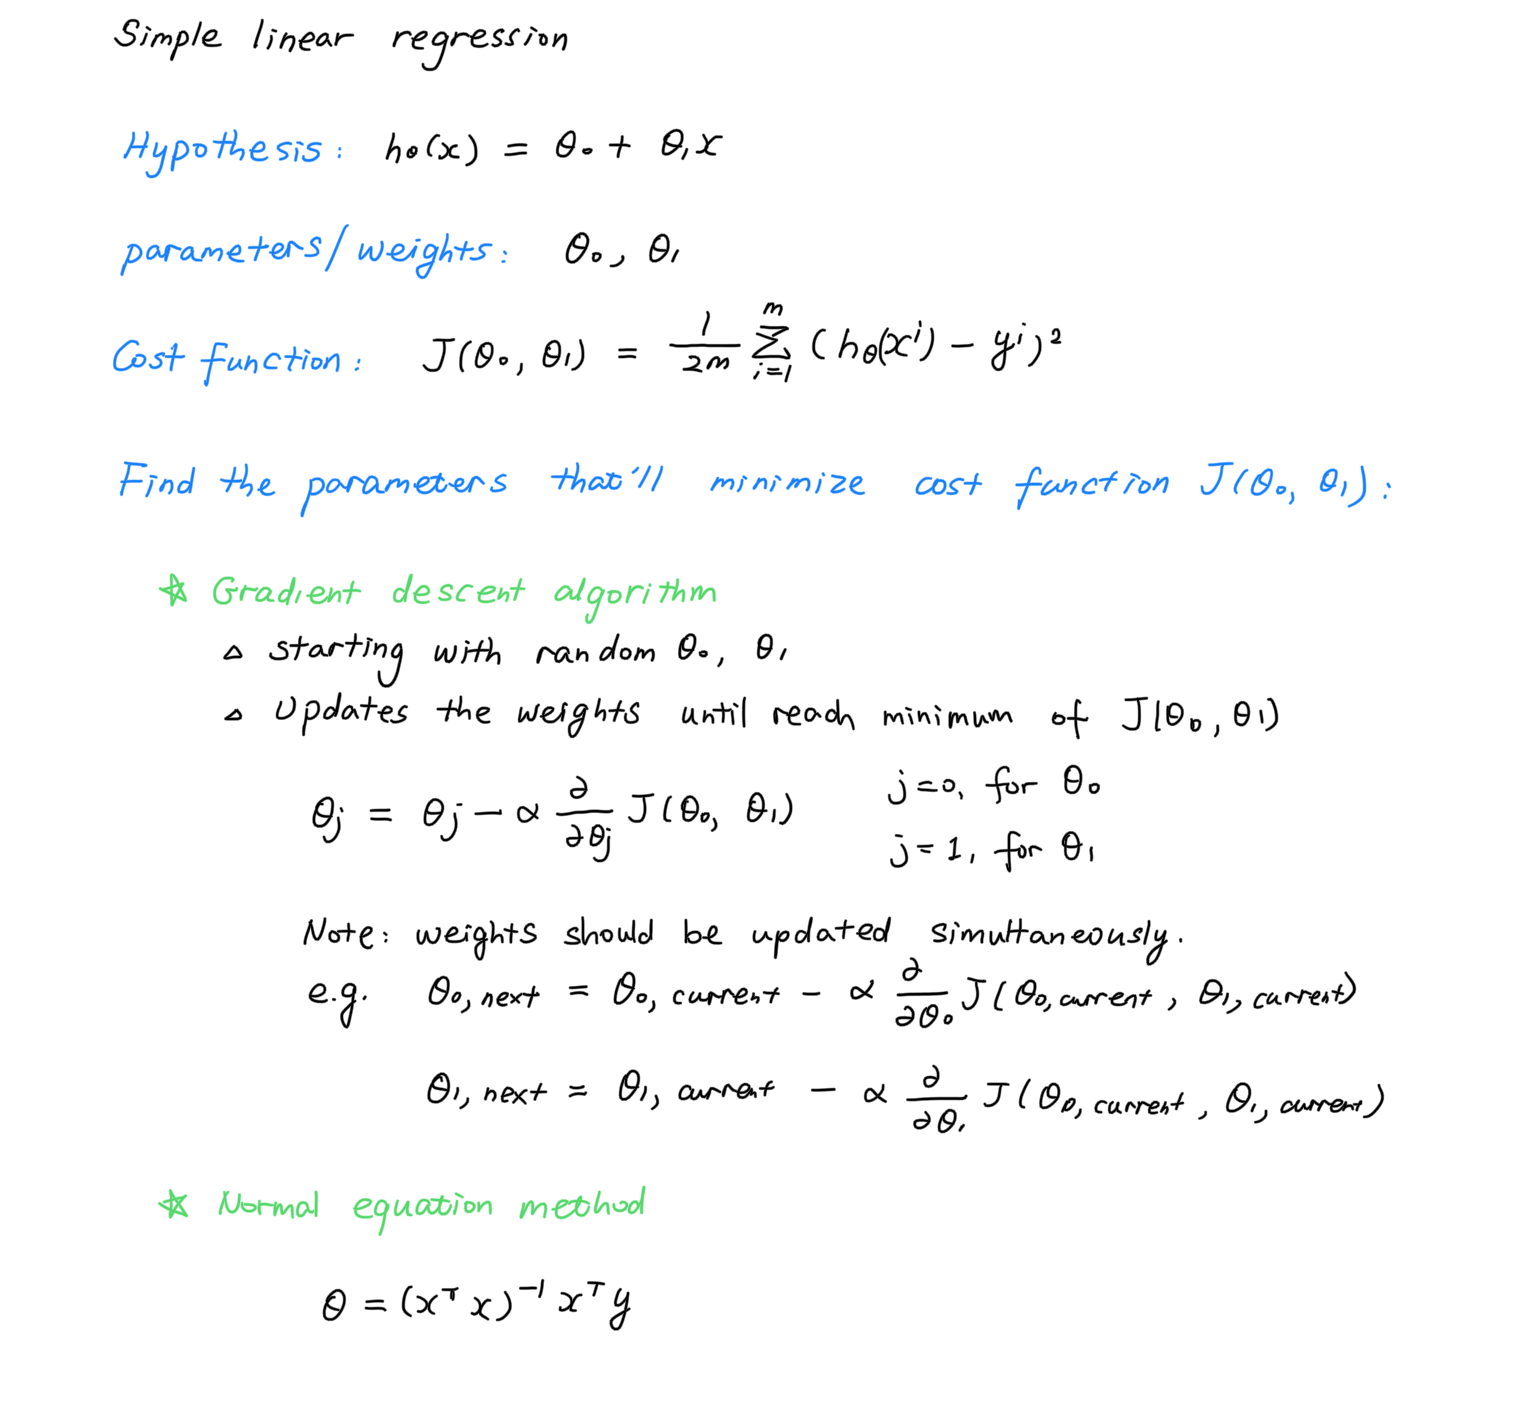 Simple linear regression
Hypothesis: hθ(x) = θ₀ + θ₁x
parameters/weights: θ₀, θ₁
Cost function: J(θ₀, θ₁) = 1/2m Σᵢ₌₁ᵐ (hθ(xⁱ) − yⁱ)²
Find the parameters that'll minimize cost function J(θ₀, θ₁):
☆ Gradient descent algorithm
△ starting with random θ₀, θ₁
△ Updates the weights until reach minimum of J(θ₀, θ₁)
θj = θj − α ∂/∂θj J(θ₀, θ₁) j=0, for θ₀
j=1, for θ₁
Note: weights should be updated simultaneously.
e.g. θ₀, next = θ₀, current − α ∂/∂θ₀ J(θ₀, current, θ₁, current)
θ₁, next = θ₁, current − α ∂/∂θ₁ J(θ₀, current, θ₁, current)
☆ Normal equation method
θ = (xᵀx)⁻¹xᵀy